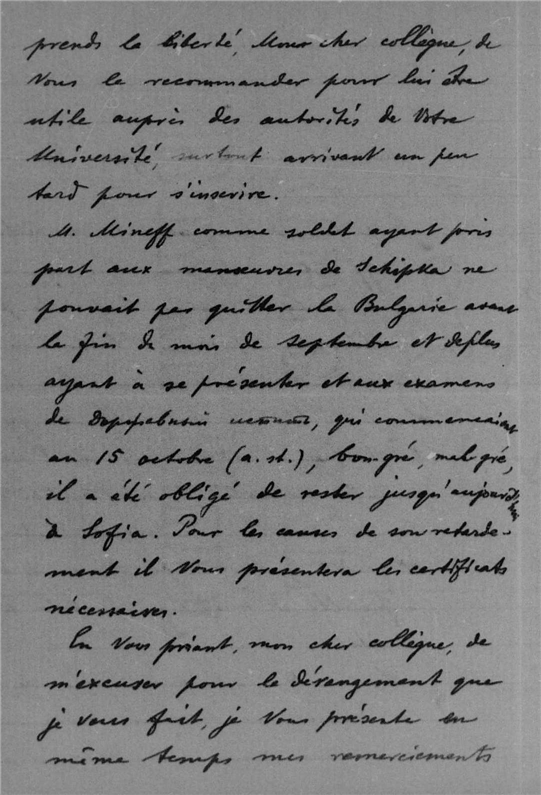 prends la liberté, Mon cher collègue, de
Vous le recommander pour lui être
utile auprès des autorités de Votre
Université, surtout arrivant un peu
tard pour s'inscrire.
M. Mineff comme soldat ayant pris
part aux manœuvres de Schipka ne
pouvait pas quitter la Bulgarie avant
la fin du mois de septembre et deplus
ayant à se présenter et aux examens
de държавный испит, qui commencaient
au 15 octobre (a. st.), bon-gré, mal-gré,
il a été obligé de rester jusqu'aujourd'hui
à Sofia. Pour les causes de son retarde-
ment il Vous présentera les certificats
nécessaires.
En Vous priant, mon cher collègue, de
m'excuser pour le dérangement que
je vous fait, je Vous présente en
même temps mes remerciements